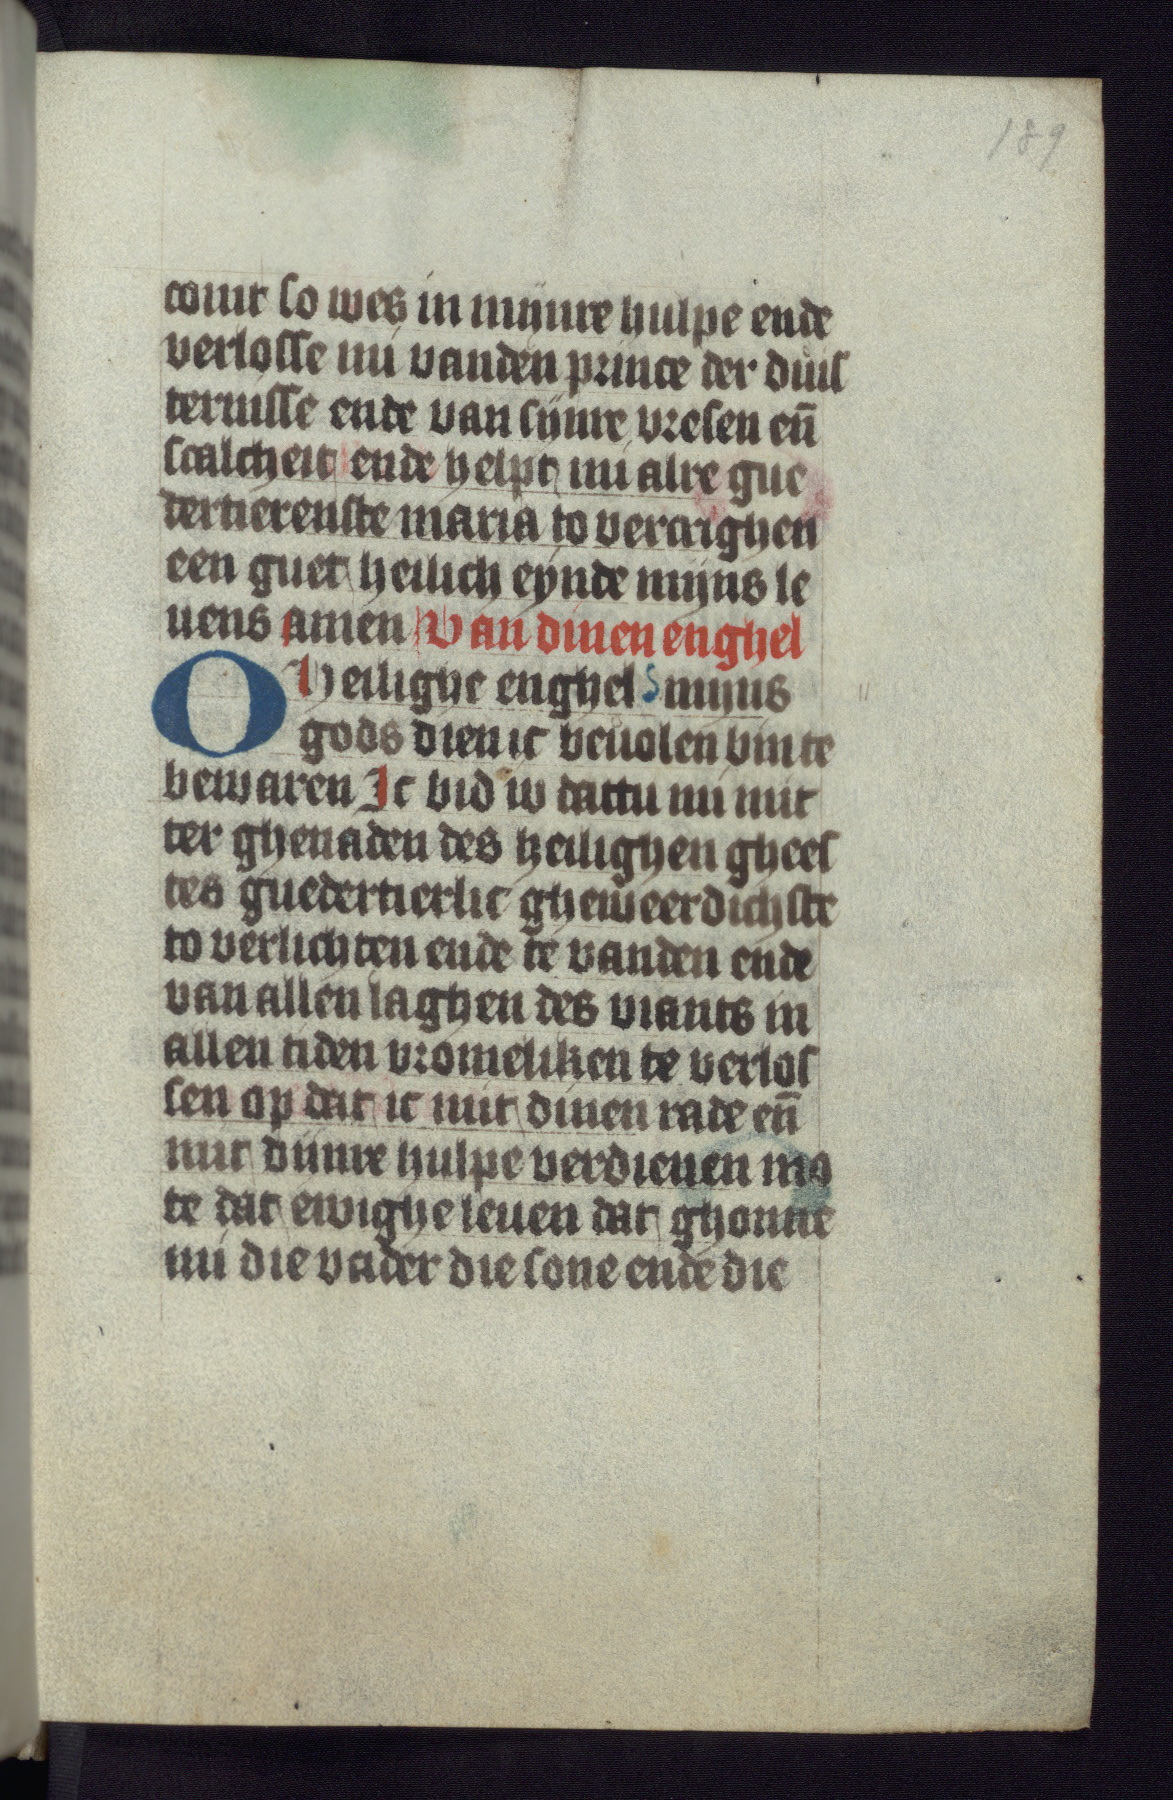 189
comt so wes in mijnre hulpe ende
verlosse mi vanden prince der duis
ternisse ende van sijnre vresen en̄
scalcheit ende helpt mi alre gue
dertierenste maria to vercrighen
een guet heilich eynde mijns le
uens amen Van dinen enghel
O heilighe enghel s mijns
gods dien ic beuolen bin te
bewaren Ic bid iv dattu mi mit
ter ghenaden des heilighen ghees
tes guedertierlic gheweerdichste
to verlichten ende te vanden ende
van allen laghen des viants in
allen tiden vromeliken te verlos
sen op dat ic mit dinen rade en̄
mit dijnre hulpe verdienen mo
te dat ewighe leuen dat ghonne
mi die vader die sone ende die